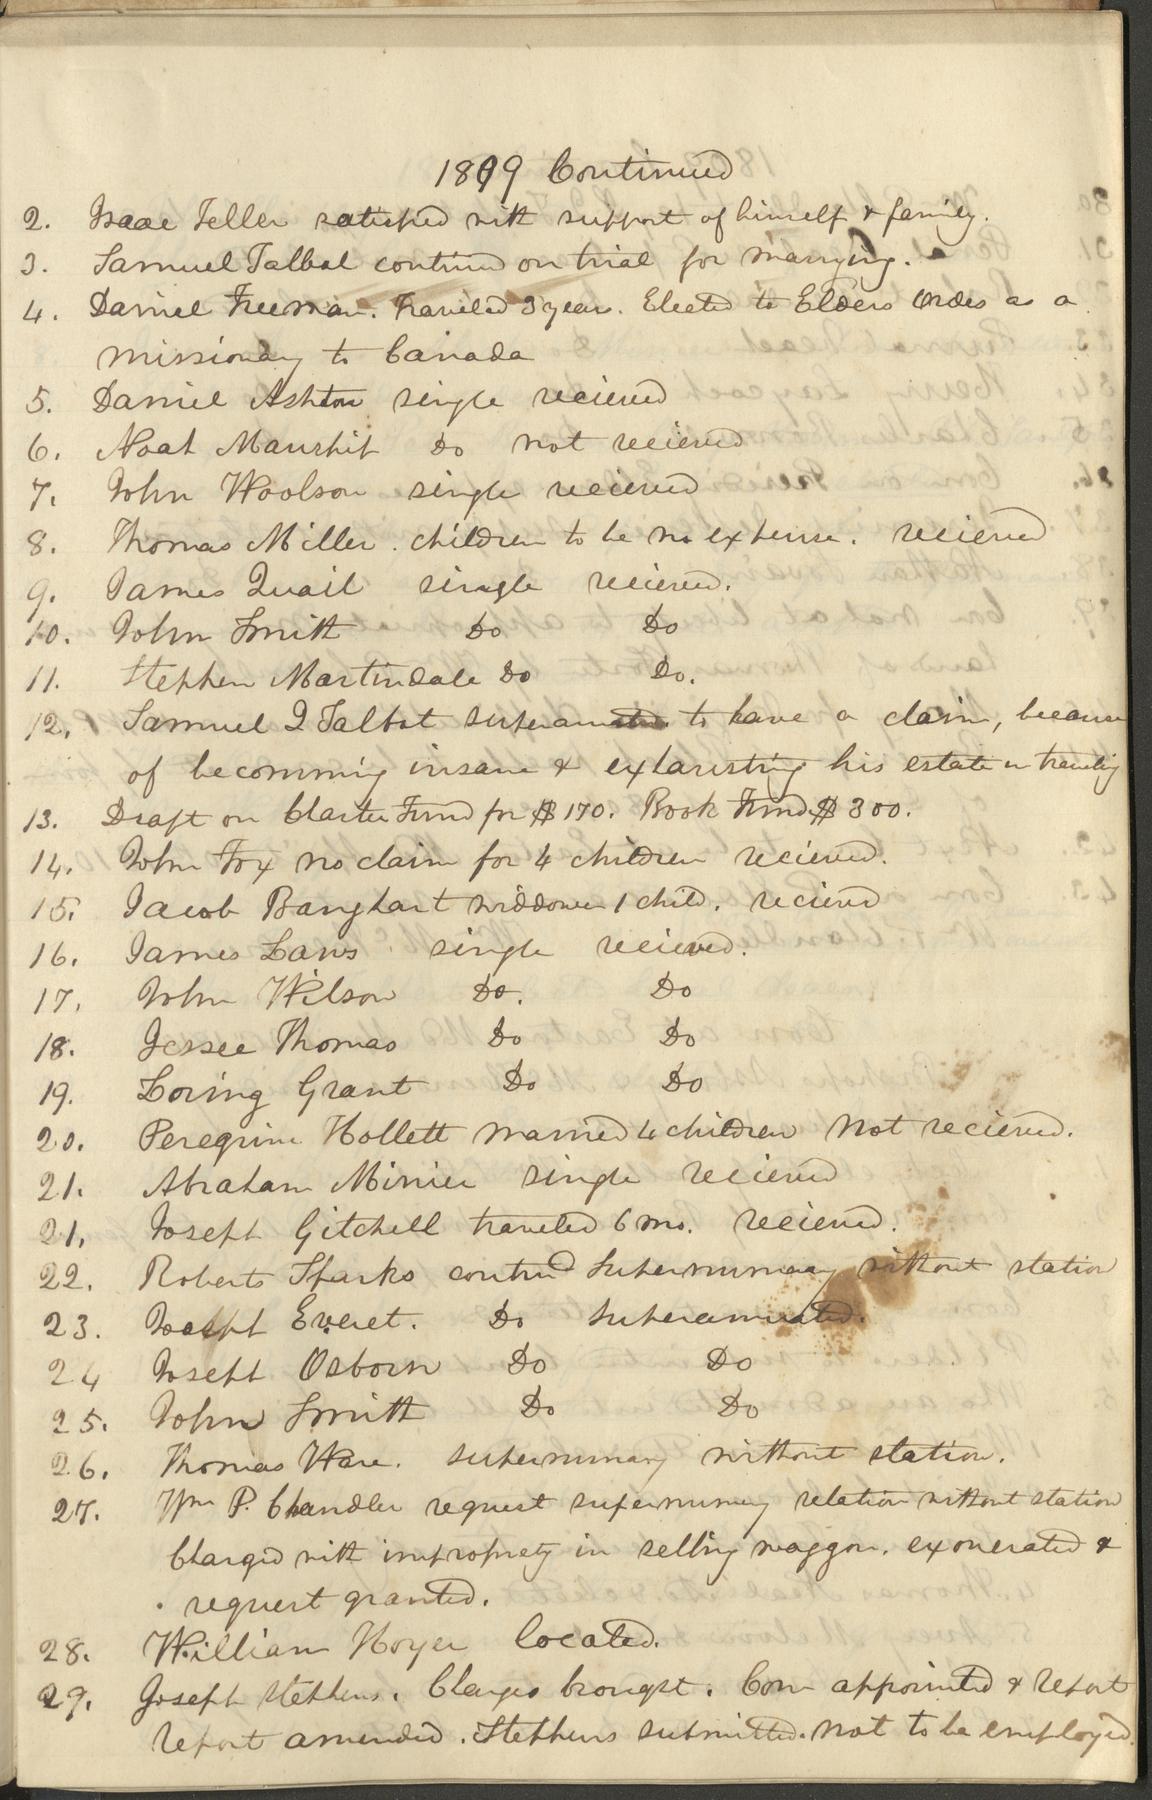 1809 Continued
2. Isaac Teller satisfied with support of himself & family.
3. Samuel Talbot continu on trial for marrying.
4. Daniel Freeman. Traveled 3 years. Elected to Elders Orders as a
missionary to Canada
5. Daniel Ashton single recieved
6. Noah Manship Do not recieved
7. John Woolson single recieved
8. Thomas Miller. children to be no expense. recieved
9. James Quail single recieved.
10. John Smith Do Do
11. Stephen Martindale Do Do.
12. Samuel Q Talbot to have a claim, because
of becomming insane & exhausting his estate in traveling
13. Draft on Charter Fund for $170. Book Fund $300.
14. John Fox no claim for 4 children recieved.
15. Jacob Banghart widdower 1 child. recieved
16. James Laws single recieved.
17. John Wilson Do. Do
18. Jessee Thomas Do Do
19. Loring Grant Do Do
20. Peregrine Hollett married 4 children not recieved.
21. Abraham Minier single recieved
21. Joseph Gitchell traveled 6 mo. recieved.
22. Roberts Sparks contind Supernumeray without station
23. Joseph Everet. Do Superannuated.
24 Joseph Osborn Do Do
25. John Smith Do Do
26. Thomas Ware. supernumary without station.
27. Wm P. Chandler request supernumery relation without station
Charged with impropriety in selling waggon. exonerated &
request granted.
28. William Hoyer located.
29. Joseph Stephens. Charges brought. Com appointed & report
report amended. Stephens submitted. not to be employed.